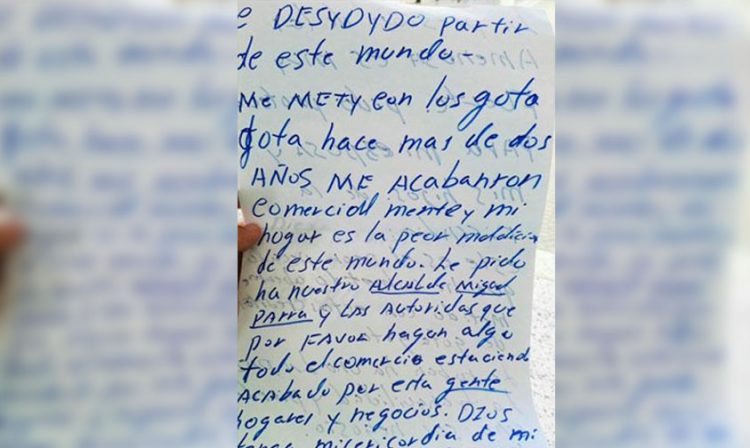 e DESYDYDO partir
de este mundo-
Me METY con los gota
gota hace mas de dos
AÑOS ME ACabanron
comerciall mente y mi
hogar es la peor maldicion
de este mundo. Le pido
ha nuestro Alcalde Miguel
PARRA y LAS AUTORIDAS que
por FAVOR hagan algo
todo el comercio esta ciend
ACAbado por esta gente
hogares y negocios. DIOS
misericordia de mi